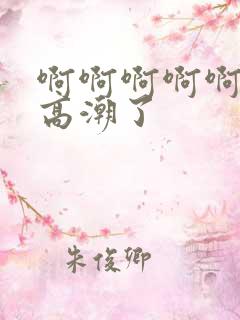 啊啊啊啊啊
高潮了
朱俊卿